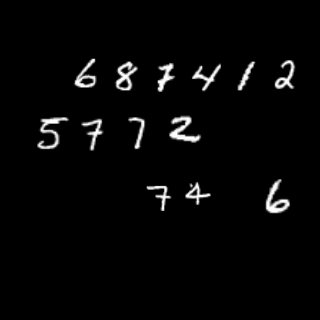 687412
5772
74 6